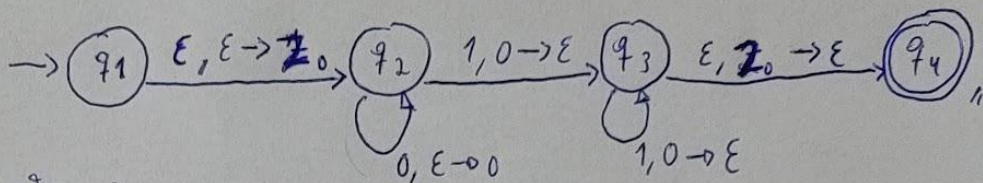 q1 ε, ε→Z₀ q2 1, 0→ε q3 ε, Z₀→ε q4
0, ε→0 1, 0→ε